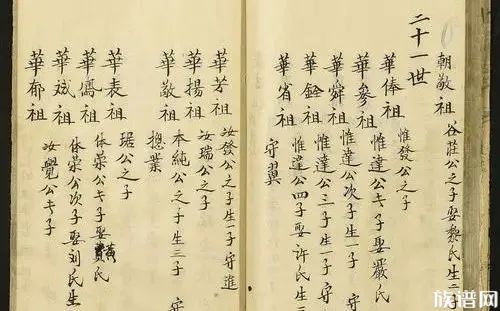 朝敬祖 谷莊公之子娶黎氏生二子
二十一世
華俸祖 惟發公之子
華參祖 惟達公長子娶嚴氏
華舜祖 惟達公次子生一子 守
華銓祖 惟達公三子生一子 守
華省祖 惟達公四子娶許氏生
守翼
華芳祖 汝發公之子生一子 守進
華揚祖 汝瑞公之子
華敬祖 本純公之子生三子 守
摠業
華表祖 琚公之子
華儁祖 体榮公長子娶黃氏
華斌祖 体榮公次子娶刘氏生
華郁祖 汝覺公長子
族谱网